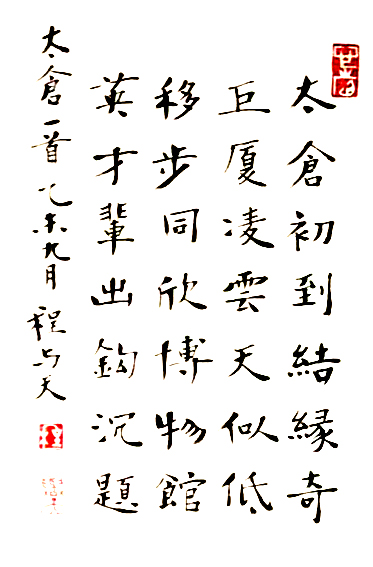 太倉初到結緣奇
巨厦凌雲天似低
移步同欣博物館
英才輩出鈎沉題
太倉一首 乙未九月
程与天